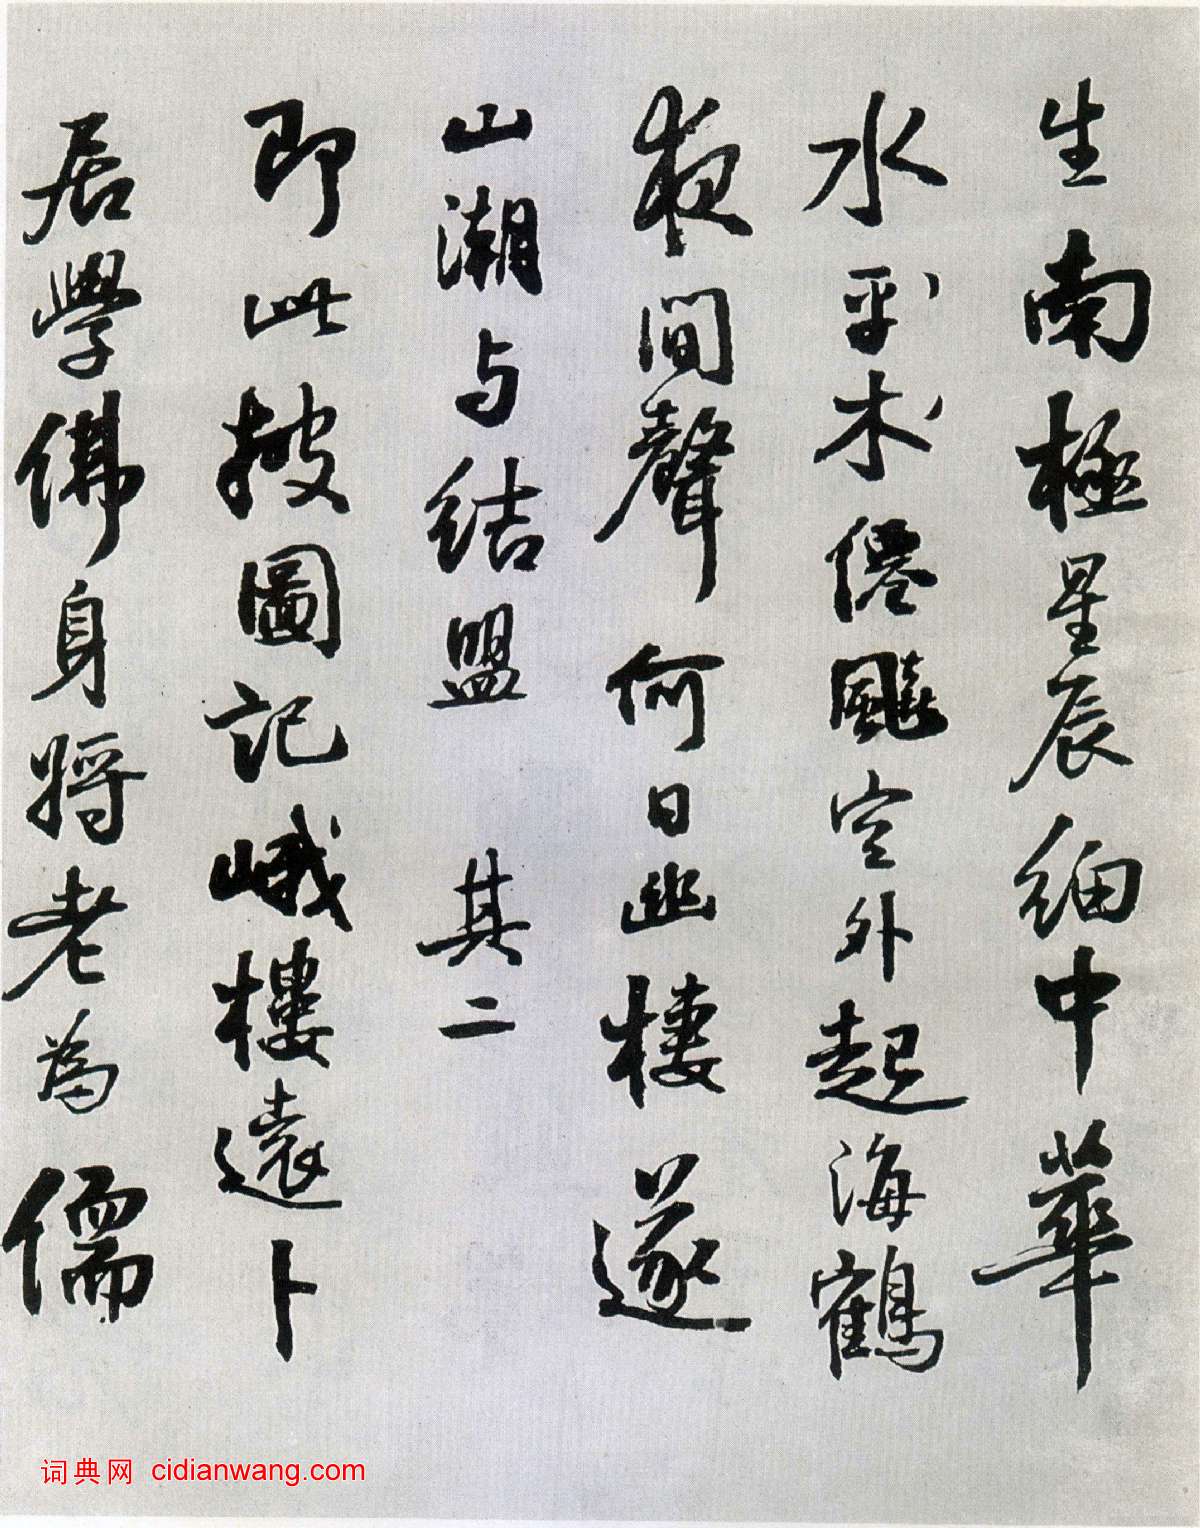 生南極星辰細中華
水平木僊飈空外起海鶴
夜間聲何日幽棲遂
山潮与結盟 其二
即此披圖記峨樓遠卜
居學佛身將老為儒
词典网 cidianwang.com